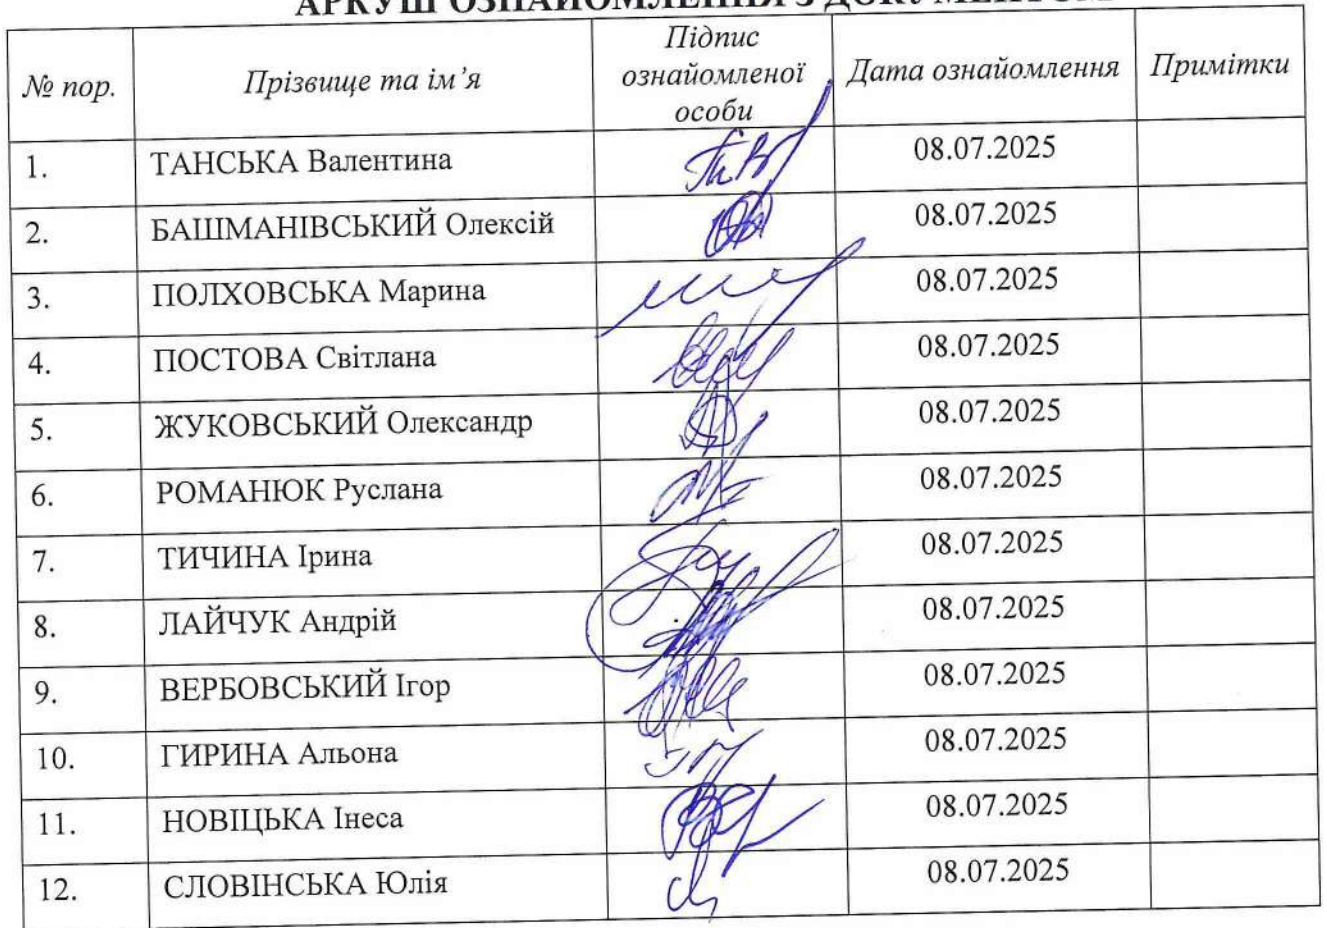 АРКУШ ОЗНАЙОМЛЕННЯ З ДОКУМЕНТОМ
№ пор. Прізвище та ім’я Підпис ознайомленої особи Дата ознайомлення Примітки
1. ТАНСЬКА Валентина 08.07.2025
2. БАШМАНІВСЬКИЙ Олексій 08.07.2025
3. ПОЛХОВСЬКА Марина 08.07.2025
4. ПОСТОВА Світлана 08.07.2025
5. ЖУКОВСЬКИЙ Олександр 08.07.2025
6. РОМАНЮК Руслана 08.07.2025
7. ТИЧИНА Ірина 08.07.2025
8. ЛАЙЧУК Андрій 08.07.2025
9. ВЕРБОВСЬКИЙ Ігор 08.07.2025
10. ГИРИНА Альона 08.07.2025
11. НОВІЦЬКА Інеса 08.07.2025
12. СЛОВІНСЬКА Юлія 08.07.2025